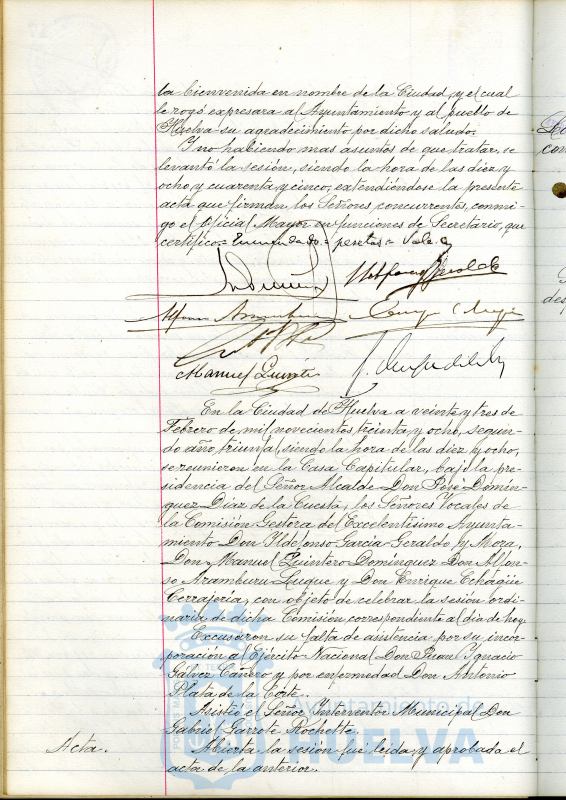 la bienvenida en nombre de la Ciudad, y el cual
le rogó expresara al Ayuntamiento y al pueblo de
Huelva su agradecimiento por dicho saludo.
Y no habiendo mas asuntos de que tratar, se
levantó la sesión, siendo la hora de las diez y
ocho y cuarenta y cinco, extendiéndose la presente
acta que firman los Señores concurrentes, conmi-
go el Oficial Mayor en funciones de Secretario, que
certifico = Enmendado = pesetas = Vale
Manuel Quintero
En la Ciudad de Huelva a veinte y tres de
Febrero de mil novecientos treinta y ocho, segun-
do año triunfal, siendo la hora de las diez y ocho,
se reunieron en la Casa Capitular, bajo la pre-
sidencia del Señor Alcalde Don José Domín-
guez Díaz de la Cuesta, los Señores Vocales de
la Comisión Gestora del Excelentísimo Ayunta-
miento Don Ildefonso García Geraldo y Mora,
Don Manuel Quintero Domínguez Don Alfon-
so Aramburu Luque y Don Enrique Echagüe
Cerrajería, con objeto de celebrar la sesión ordi-
naria de dicha Comisión correspondiente al día de hoy.
Excusaron su falta de asistencia por su incor-
poración al Ejército Nacional Don Juan Ignacio
Gálvez Cañero y por enfermedad Don Antonio
Plata de la Corte.
Asistió el Señor Interventor Municipal Don
Gabriel Garrote Rochette.
Acta. Abierta la sesión fué leida y aprobada el
acta de la anterior.
Ayuntamiento de
HUELVA